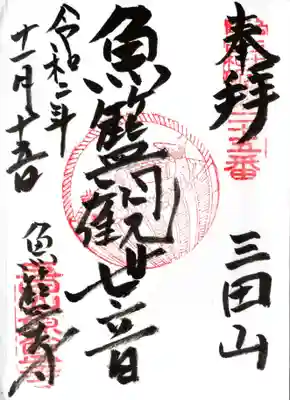 奉拝
三田山
魚籃観世音
令和二年
十一月十五日
魚籃寺